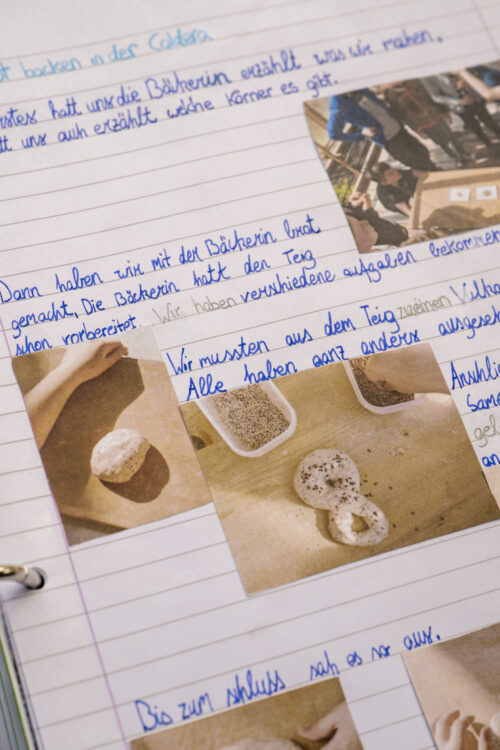 backen in der Caldera
hatt uns die Bäckerin erzählt was wir mahen,
uns auh erzählt welche Körner es gibt.
Dann haben wir mit der Bäckerin brot
gemacht, Die Bäckerin hatt den Teig
schon vorbereitet. Wir haben verschiedene aufgaben bekommen
Wir mussten aus dem Teig zu einen
Alle haben ganz anders
an
Bis zum shluss sah es so aus.